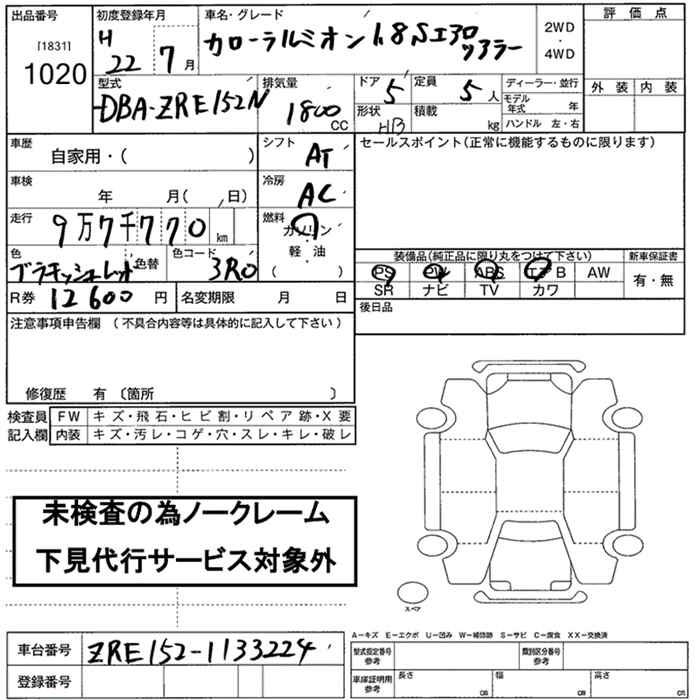 出品番号 初度登録年月 車名・グレード 評価点
[1831] 1020
H 22 7月 カローラルミオン 1.8S 2WD・4WD
外装 内装
型式 排気量 ドア 定員 ディーラー・並行
DBA-ZRE152N 1800 CC 5 5人 モデル年式 年
形状 HB 積載 kg ハンドル 左・右
車歴 自家用・( ) シフト AT セールスポイント(正常に機能するものに限ります)
車検 年 月( 日) 冷房 AC
走行 9万7千770km 燃料 ガソリン・軽・油 ( )
色 色替 色コード 3R0
装備品(純正品に限り丸をつけて下さい) 新車保証書
PS PW ABS エアB AW 有・無
SR ナビ TV カワ
R券 12600円 名変期限 月 日 後日品
注意事項申告欄 (不具合内容等は具体的に記入して下さい)
修復歴 有 〔箇所 〕
検査員記入欄 FW キズ・飛石・ヒビ割・リペア跡・X要
内装 キズ・汚レ・コゲ・穴・スレ・キレ・破レ
未検査の為ノークレーム
下見代行サービス対象外
スペア
A−キズ E−エクボ U−凹み W−補修跡 S−サビ C−腐食 XX−交換済
車台番号 ZRE152-1133224
型式指定番号 参考 類別区分番号 参考
登録番号
車庫証明用 参考 長さ cm 幅 cm 高さ cm